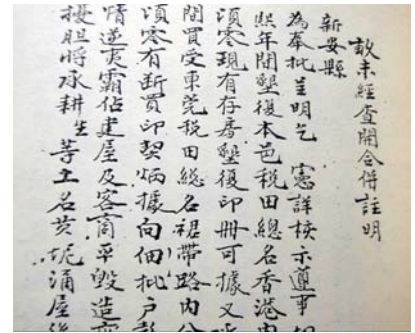 敢未經查開合併註明
新安縣
為奉批呈明乞 憲詳核示遵事
熙年間墾復本邑稅田總名香港
頃零現有存房墾復印冊可據又
間買受東莞稅田總名裙帶路內
頃零有斷買印契炳據向佃批戶
情逆夷霸佔建屋及客商平毀造
擾胆將承耕生等土名黃坭涌屋後